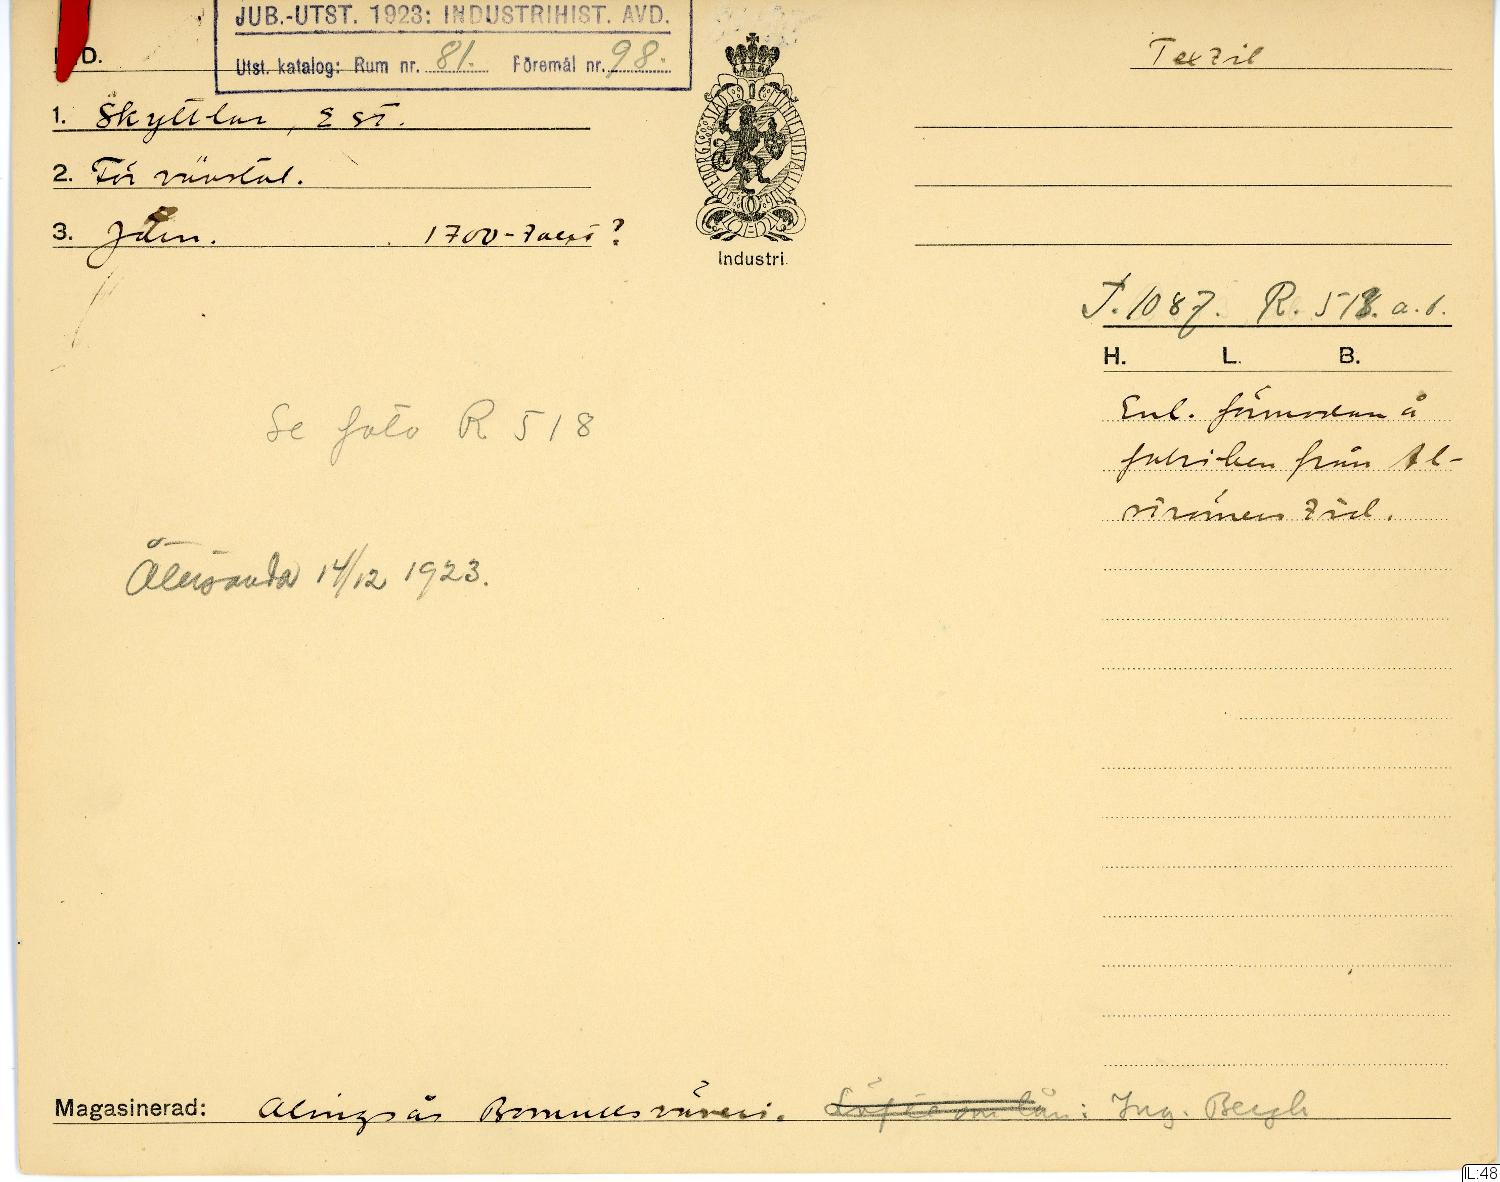 JUB.-UTST. 1923: INDUSTRIHIST. AVD.
Utst. katalog: Rum nr. 81. Föremål nr. 98.
D.
Textil
1. Skyttlar, 2 st.
2. För vävstol.
3. Järn. 1700-talet?
GÖTEBORGS STADS MINNESUTSTÄLLNING
Industri.
J. 1087. R. 518. a.b.
H. L. B.
Enl. förmodan å
fabriken från Al-
strömers tid.
Se foto R 518
Återsända 14/12 1923.
Magasinerad: Alingsås Bomullsväveri. Löfte om lån: Ing. Bergh
IL:48